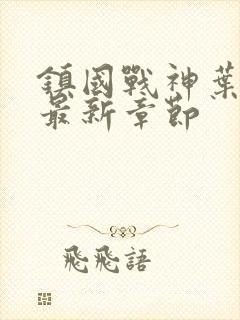 鎮國戰神葉
最新章節
飛飛語